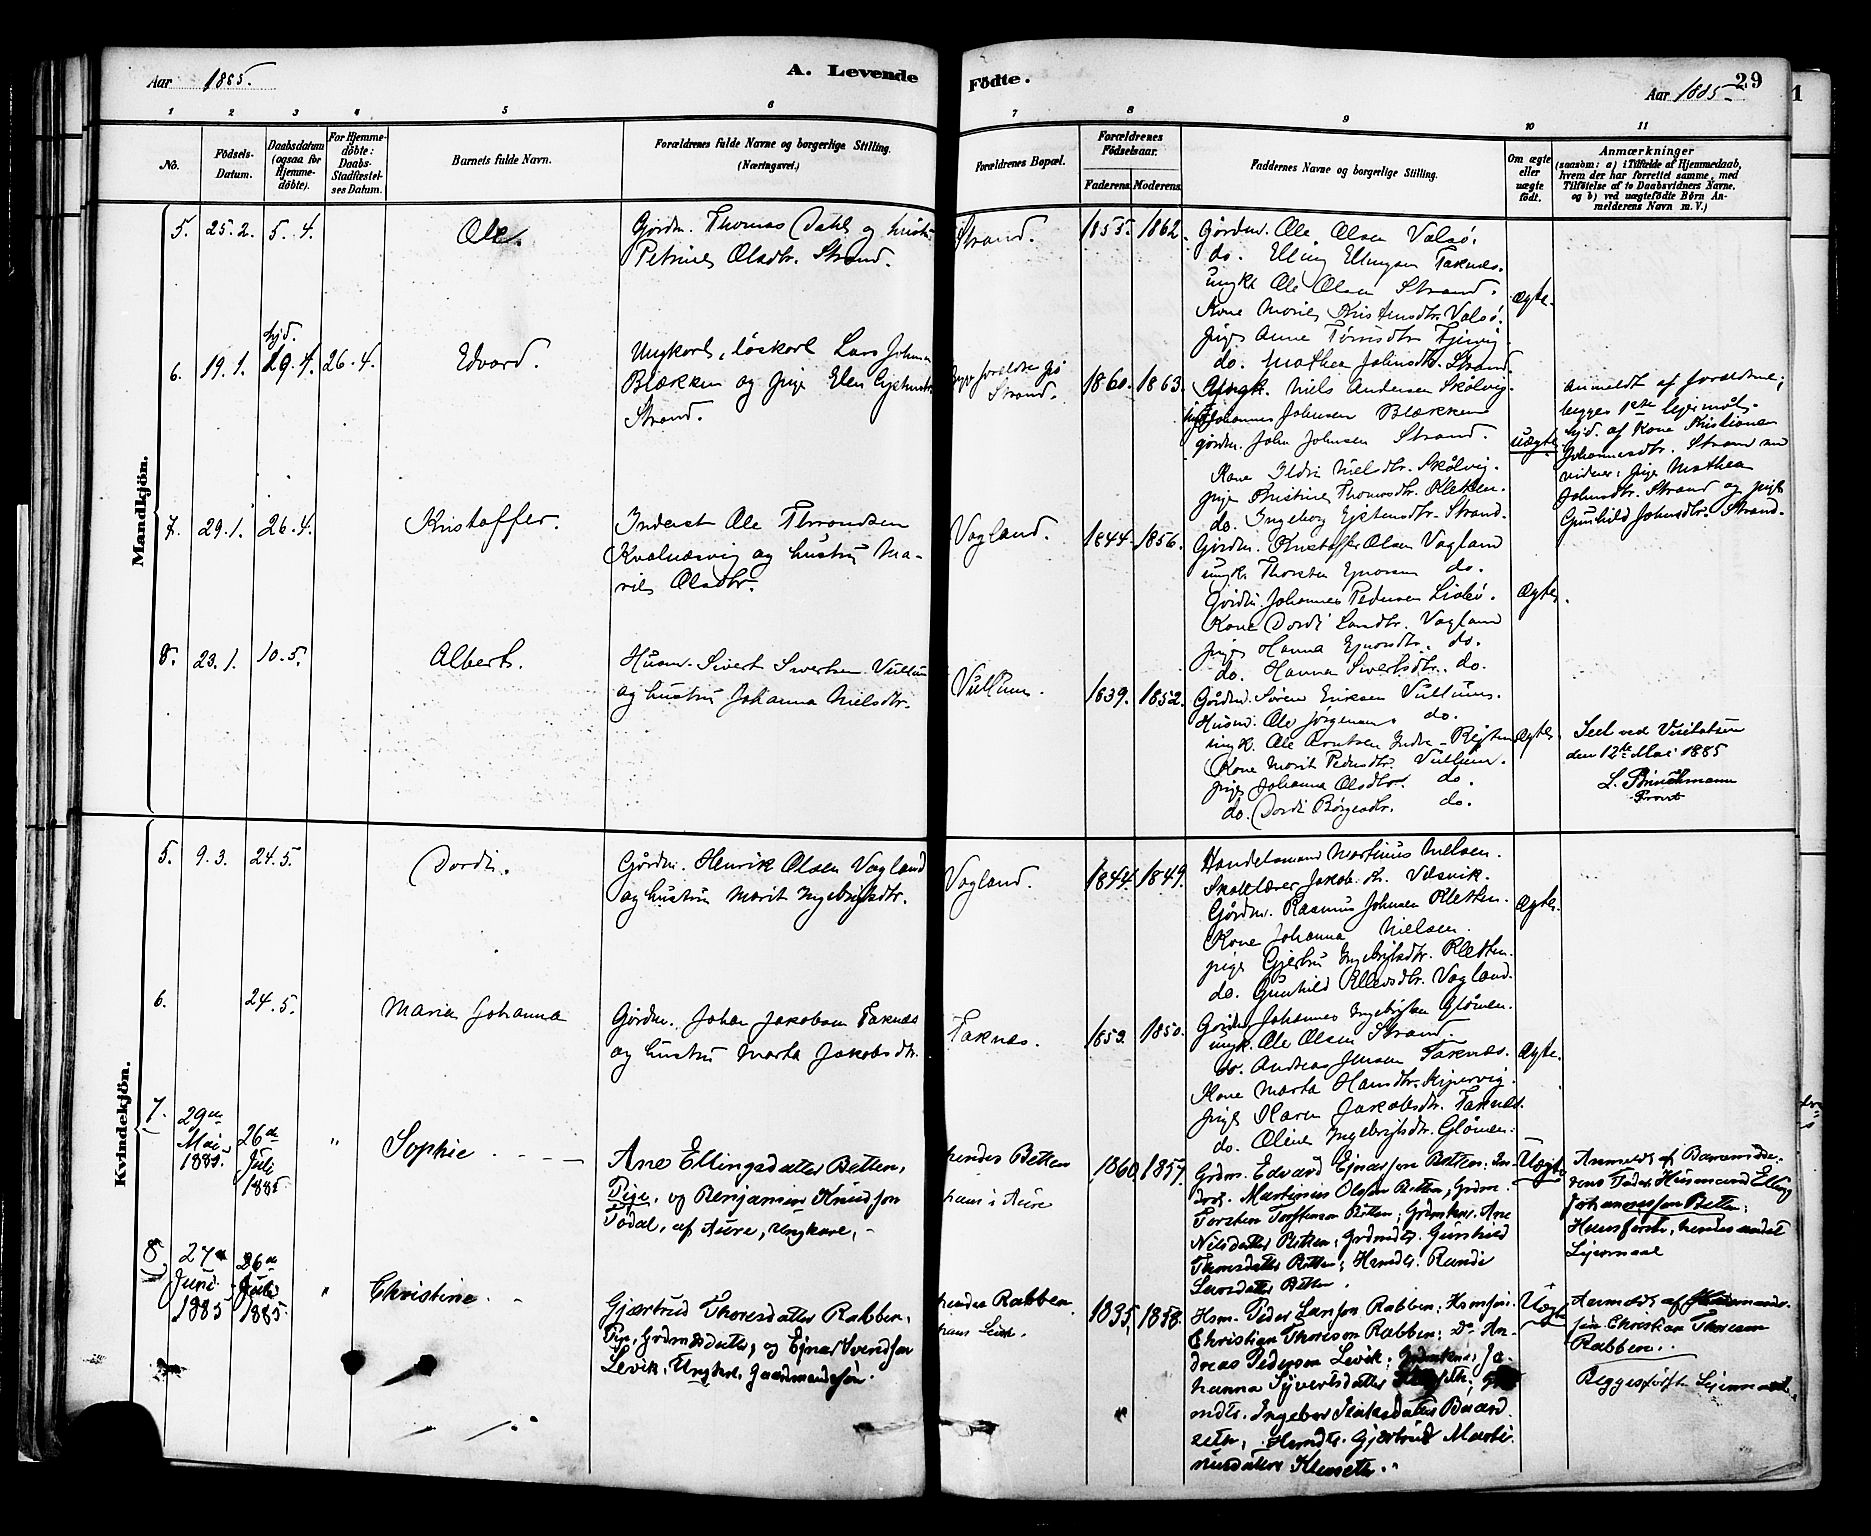 Aar 1885.
A. Levende
Födte.
Aar 1885.
29
1 2 3 4 5 6 7 8 9 10 11
No.
Födsels-
Datum.
Daabsdatum
(ogsaa for
Hjemme-
døbte).
For Hjemme-
döbte:
Daabs-
Stadfæstel-
ses Datum.
Barnets fulde Navn.
Forældrenes fulde Navne og borgerlige Stilling.
(Næringsvei.)
Forældrenes Bopæl.
Forældrenes
Födselsaar.
Faderens. Moderens.
Faddernes Navne og borgerlige Stilling.
Om ægte
eller
uægte
födt.
Anmærkninger
(saasom: a) i Tilfælde af Hjemmedaab,
hvem der har forrettet samme, med
Tilföielse af to Daabsvidners Navne,
og b) ved uægtefödte Börn An-
melderens Navn m. V.)
Mandkjön.
5. 25.2. 5.4.
Ole.
Gårdm. Thomas Dahl og hustru
Petrine Olsdtr. Strand.
Strand.
1855. 1862.
Gårdm. Ole Olsen Valsø.
do. Elling Ellingsen Taknæs.
ungk. Ole Olsen Strand.
Kone Marie Kristensdtr. Valsø.
pige Anne
do. Mathea Johnsdtr. Strand.
ægte.
6. 19.1. hjd.
19.4. 26.4.
Edvard.
Ungkarl, løskarl Lars Johnsen
Blækken og pige Elen
Strand.
forældre på
Strand.
1860. 1863.
Ungk. Niels Andersen Skålvig.
Johannes Johnsen Blækken
gårdm. John Johnsen Strand.
Kone Ildri Nielsdtr. Skålvig.
pige Kristine Thomasdtr. Kletten.
do. Ingeborg Ejstensdtr. Strand.
uægte
Anmeldt af forældrene;
begges 1ste lejermål.
hjd. af Kone Kristiane
Johannesdtr. Strand
vidner: pige Mathea
Johnsdtr. Strand og pige
Gunhild Johnsdtr. Strand.
7. 29.1. 26.4.
Kristoffer.
Inderst Ole Throndsen
Kvalnæsvig og hustru Ma-
rie Olsdtr.
Vagland.
1844. 1856.
Gårdm. Kristoffer Olsen Vagland
ungk. Thorsten Ejnarsen do.
Gårdm. Johannes Pedersen Lialø.
Kone Dordi Larsdtr. Vagland
pige Hanna Ejnarsdtr. do.
do. Hanna Sivertsdtr. do.
Ægte.
8. 23.1. 10.5.
Albert.
Husm. Sivert Sivertsen Vullum
og hustru Johanna Nielsdtr.
Vullum.
1839. 1852.
Gårdm. Søren Eriksen Vullum.
Husm. Ole Jørgensen do.
ungk. Ole Arntsen Indre-Rejten
Kone Marit Pedersdtr. Vullum.
pige Johanna Olsdtr. do.
do. Dordi Børgesdtr. do.
ægte.
Seet ved Visitatsen
den 12te Mai 1885
L. Brinchmann
Provst
Kvindekjön.
5. 9.3. 24.5.
Dordi.
Gårdm. Henrik Olsen Vagland
og hustru Marit Ingebrigtsdtr.
Vagland.
1844. 1849.
Handelsmand Martinus Nielsen.
Skolelærer Jakob Kr. Valsvik.
Gårdm. Rasmus Johnsen Kletten.
Kone Johanna Nielsen.
pige Gjertru Ingebrigtsdtr. Kletten.
do. Gunhild Ellevsdtr. Vagland.
ægte.
6. 24.5.
Maria Johanna
Gårdm. Johan Jakobsen Taknæs
og hustru Marta Jakobsdtr.
Taknæs.
1853. 1850.
Gårdm. Johannes Ingebrigtsen Glåmen.
ungk. Ole Olsen Strand
do. Andreas Jensen Taknæs.
Kone Marta Hansdtr. Kipervig.
pige Karen Jakobsdtr. Taknæs.
do. Oline Ingebrigtsdtr. Glåmen.
Ægte.
7. 29de
Mai
1885. 26de
Juli
1885 "
Sophie
Ane Ellingsdatter Betten,
Pige, og Benjamin Knudsøn
Tødal, af Aure, Ungkarl,
hendes Betten
hans i Aure
1860 1857.
Grdm. Edvard Ejnarssøn Betten; In-
derst. Martinius Olssøn Betten, Grdm.
Torsten Torstensøn Betten; Grdmkone. Ane
Nilsdatter Betten; Grdmdtr. Gunhild
Thoresdatter Betten; Hsmdtr. Randi
Larsdatter Betten.
Uægte
Anmeldt af Barnemode-
rens Fader Husmand Elling
Johannessøn Betten;
Hans første, hendes andet
Lejermaal
8. 27
Juni
1885 26de
Juli
1885. "
Christine
Gjærtrud Thoresdatter Rabben,
Pige, Grdmdatter, og Ejnar Svendsøn
Levik, Ungkarl, Gaardmandssøn.
hendes Rabben
hans Levik.
1835, 1858.
Hsm. Peder Larssøn Rabben; Hsmsøn.
Christian Thoresøn Rabben; Do An-
dreas Pedersøn Levik; Grdmkone. Jo-
hanna Syvertsdatter
mdtr. Ingeborg Baard
seth, Hsmdtr. Gjærtrud Marti-
nusdatter Klauseth.
Uægte
Anmeldt af Husmands-
søn Christian Thoresøn
Rabben.
Begges første Lejermaal.